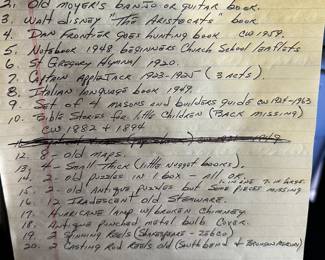 2. Old Moyer's Banjo or Guitar Book.
3. Walt Disney "The Aristocats" book
4. Dan Frontier Goes Hunting book CW 1959.
5. Notebook 1948 Beginners Church School Leaflets
6. St Gregory Hymnal 1920.
7. Captain Applejack 1923-1925 - (3 Acts).
8. Italian Language book 1909.
9. Set of 4 Masons and Builders Guide CW 1924-1963
10. Bible Stories for Little Children (Back missing)
CW. 1882 + 1894
11.
12. 8 - Old Maps.
13. 4 - Small Thick (Little Nugget Books).
14. 2 - Old Puzzles in 1 Box - All OK
15. 2 - Old Antique Puzzles but some pieces missing
16. 12 Iradescent Old Stemware.
17. Hurricane Lamp w/ Broken Chimney.
18. Antique Punched Metal Bulb Cover.
19. 2 Spinning Reels (Shakespeare - Zebco)
20. 2 Casting Rod Reels Old (Southbend +